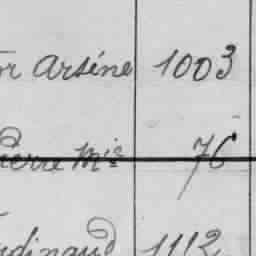 or Arséne 1003
Pierre Mis 76
rdinand 1112